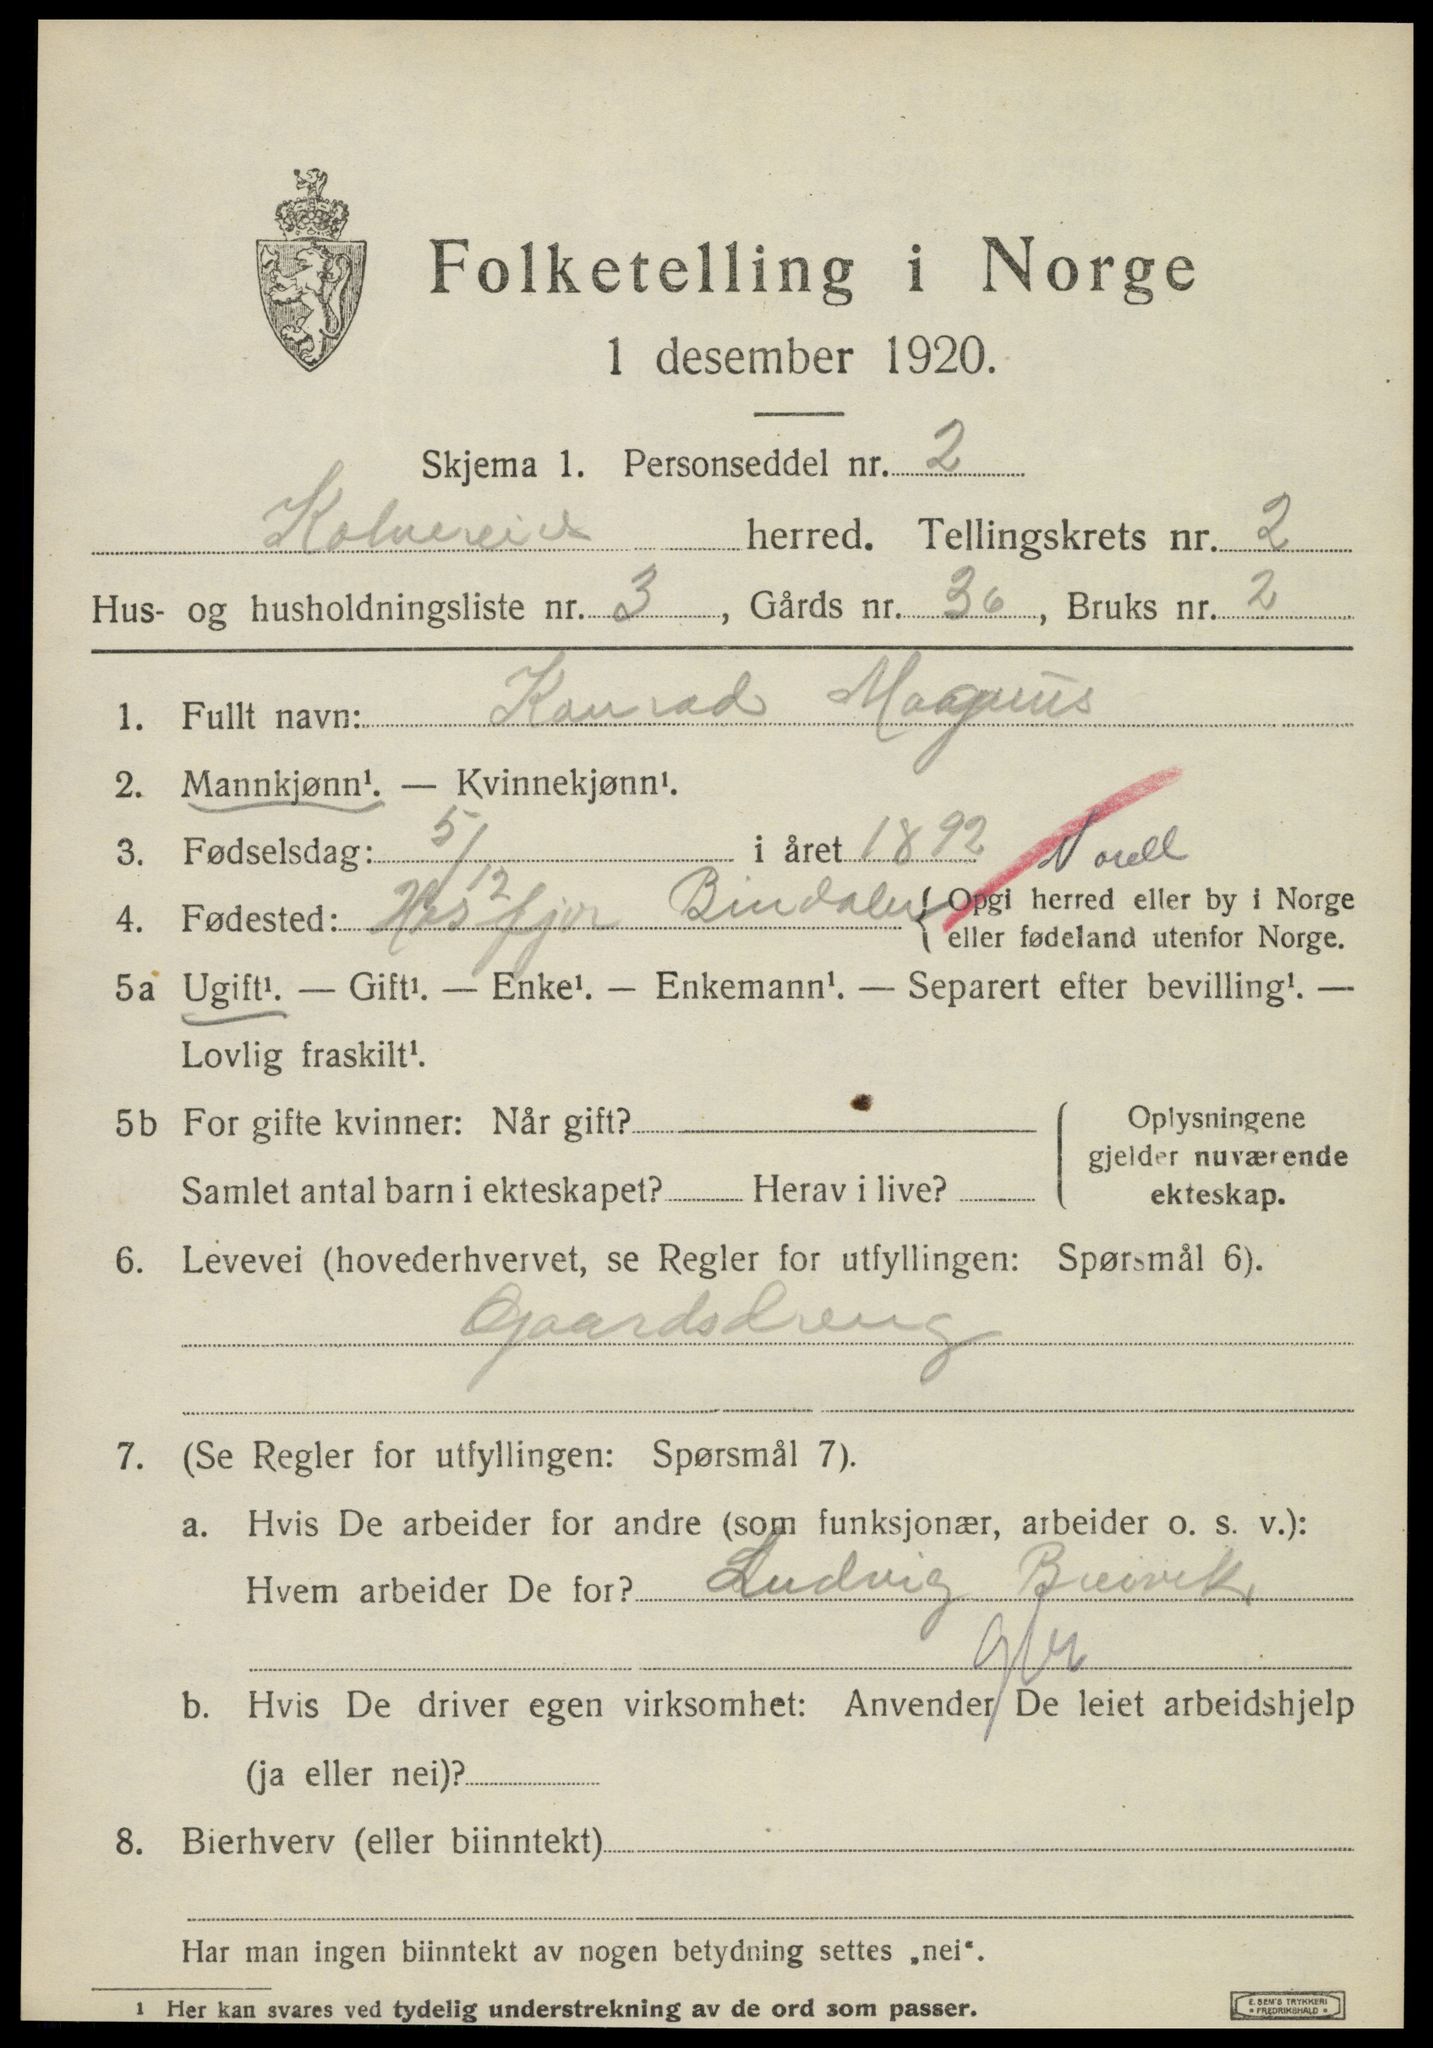 Folketelling i Norge
1 desember 1920.
Skjema 1. Personseddel nr. 2
Kolvereid herred. Tellingskrets nr. 2
Hus- og husholdningsliste nr. 3, Gårds nr. 36, Bruks nr. 2
1. Fullt navn: Konrad Magnus
2. Mannkjønn¹. — Kvinnekjønn¹.
3. Fødselsdag: 5/12 i året 1892
4. Fødested: Bindalen { Opgi herred eller by i Norge
eller fødeland utenfor Norge.
5a Ugift¹. — Gift¹. — Enke¹. — Enkemann¹. — Separert efter bevilling¹. —
Lovlig fraskilt¹.
5b For gifte kvinner: Når gift?
Samlet antal barn i ekteskapet? Herav i live?
Oplysningene
gjelder nuværende
ekteskap.
6. Levevei (hovederhvervet, se Regler for utfyllingen: Spørsmål 6).
Gaardsdreng
7. (Se Regler for utfyllingen: Spørsmål 7).
a. Hvis De arbeider for andre (som funksjonær, arbeider o. s. v.):
Hvem arbeider De for? Ludvig Breivik
b. Hvis De driver egen virksomhet: Anvender De leiet arbeidshjelp
(ja eller nei)?
8. Bierhverv (eller biinntekt)
Har man ingen biinntekt av nogen betydning settes „nei“.
1 Her kan svares ved tydelig understrekning av de ord som passer.
E. SEM'S TRYKKERI
FREDRIKSHALD